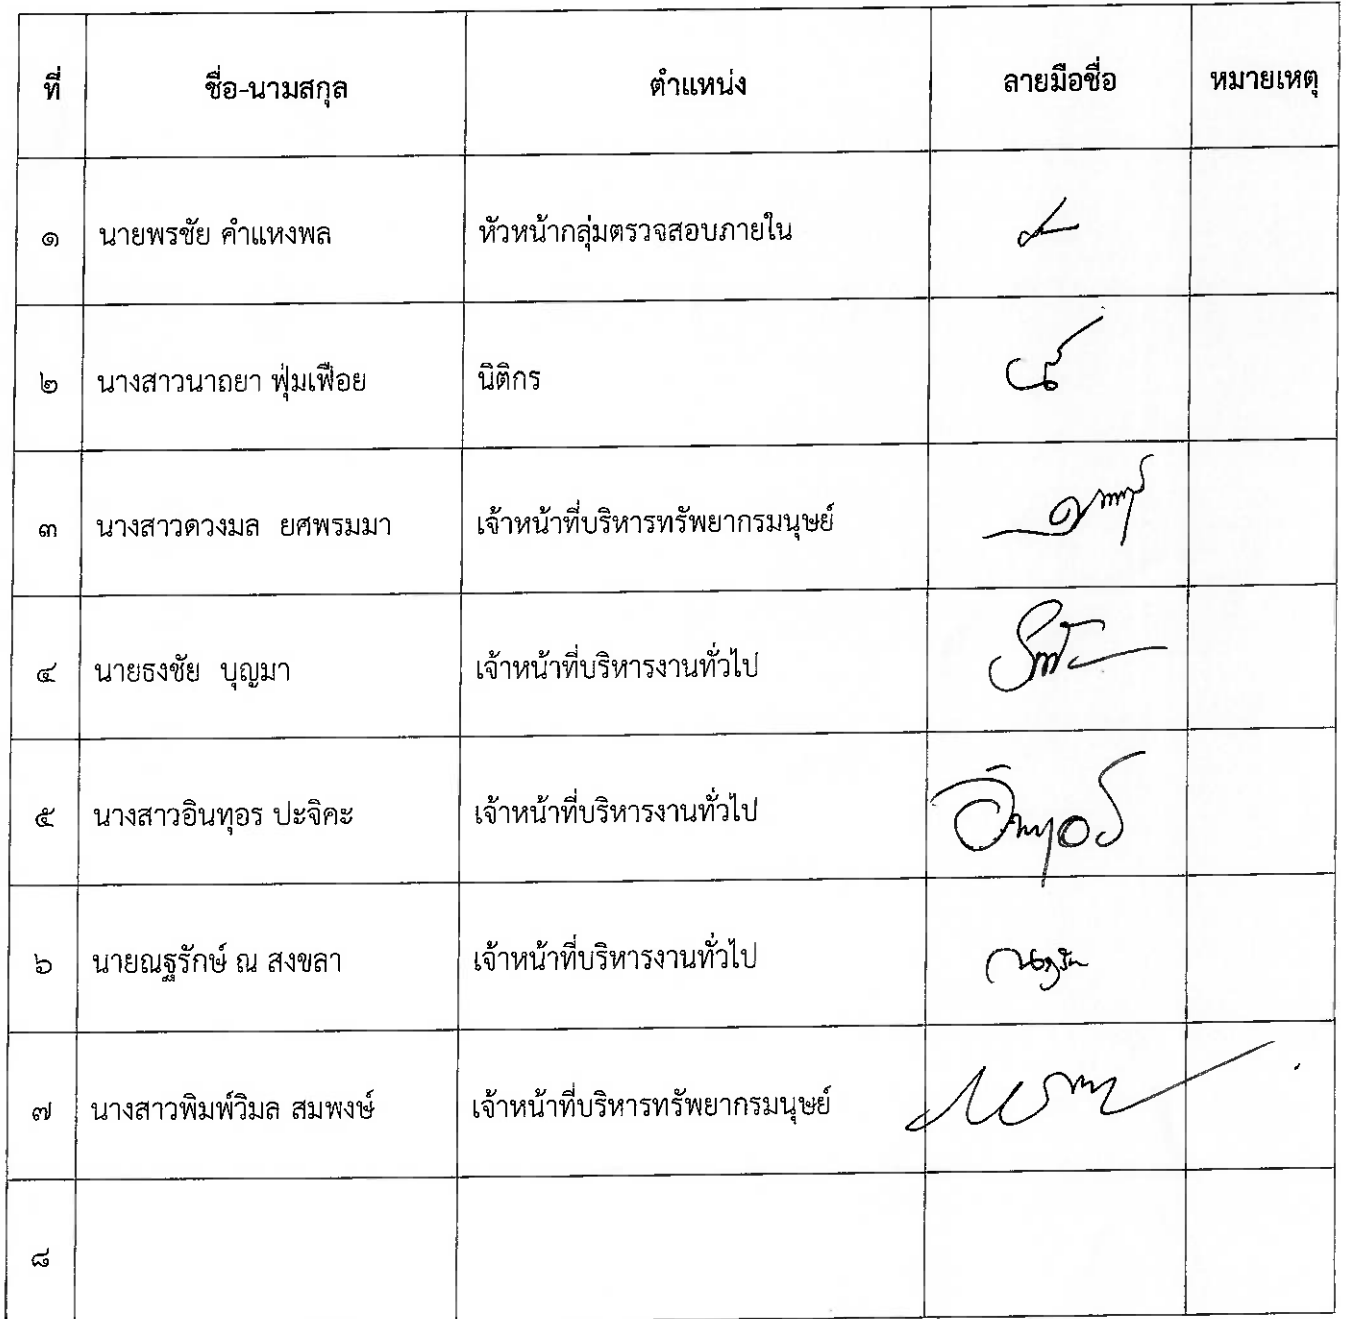 ที่ ชื่อ-นามสกุล ตำแหน่ง ลายมือชื่อ หมายเหตุ
๑ นายพรชัย คำแหงพล หัวหน้ากลุ่มตรวจสอบภายใน
๒ นางสาวนาถยา ฟุ่มเฟือย นิติกร
๓ นางสาวดวงมล ยศพรมมา เจ้าหน้าที่บริหารทรัพยากรมนุษย์
๔ นายธงชัย บุญมา เจ้าหน้าที่บริหารงานทั่วไป
๕ นางสาวอินทุอร ปะจิคะ เจ้าหน้าที่บริหารงานทั่วไป อินทุอร
๖ นายณฐรักษ์ ณ สงขลา เจ้าหน้าที่บริหารงานทั่วไป
๗ นางสาวพิมพ์วิมล สมพงษ์ เจ้าหน้าที่บริหารทรัพยากรมนุษย์
๘